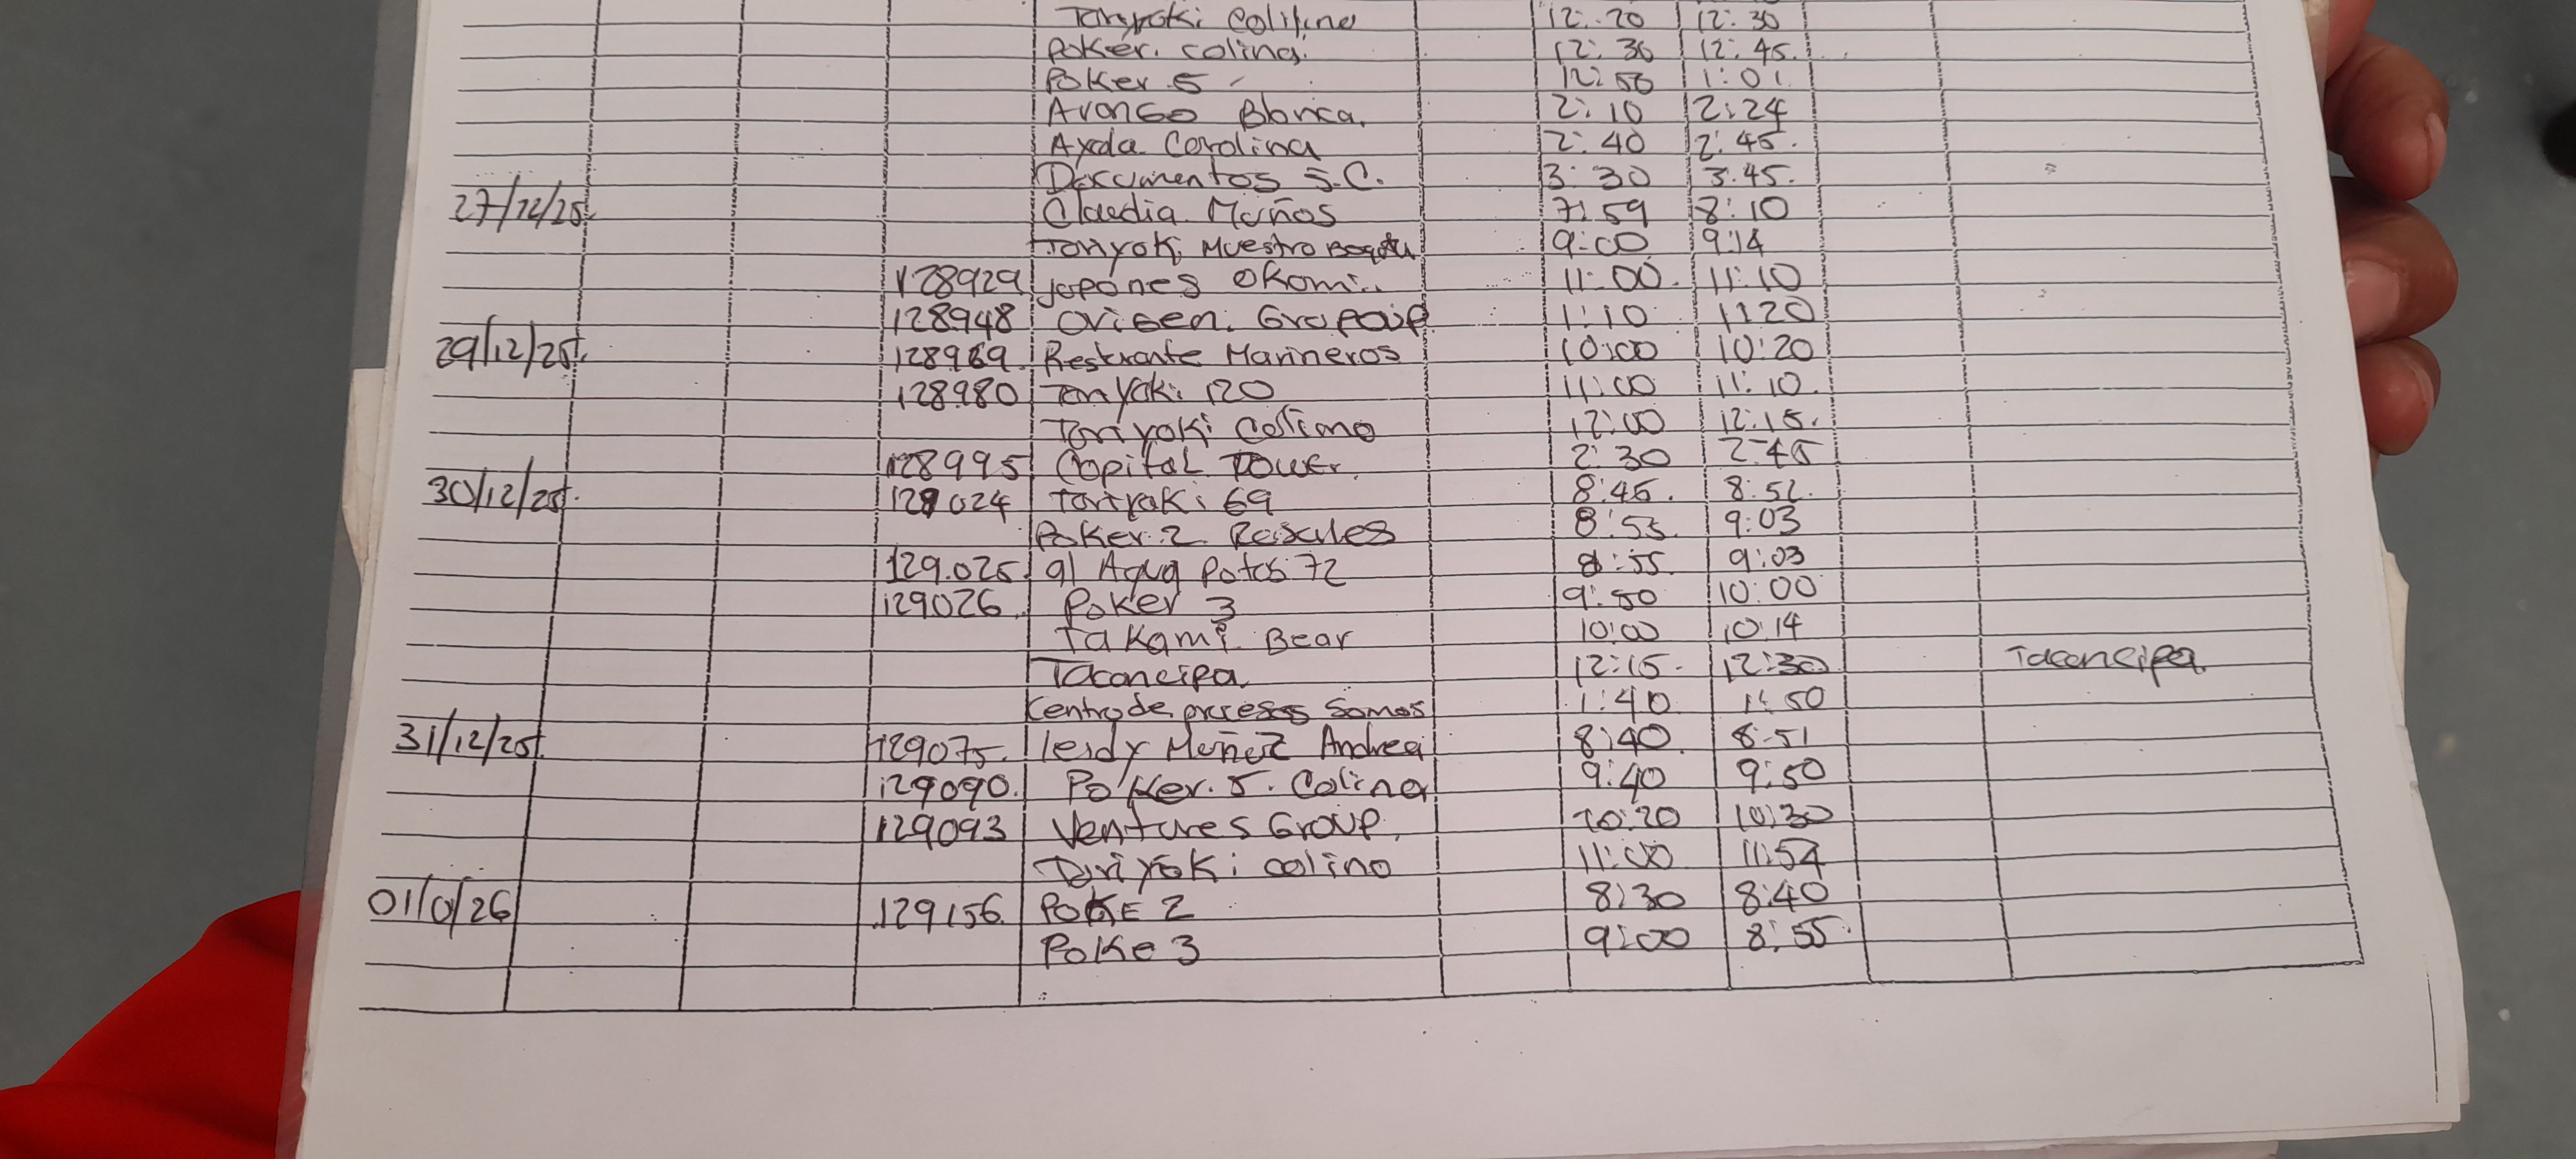 Toriyaki Colina 12:20 12:30
Poker. colina. 12:30 12:45.
Poker 5 12:50 1:01
Avenso Blanca. 2:10 2:24
Ayda Carolina 2:40 2:45.
Documentos S.C. 3:30 3:45.
27/12/25. Claudia Muños 7:59 8:10
Toriyoki Muestro Bogota 9:00 9:14
128929 japones Okami.. 11:00. 11:10
128948 Origen. 1:10 1:20
29/12/25. 128969. Restrante Marineros 10:00 10:20
128980 Toriyaki 120 11:00 11:10.
Toriyaki Colina 12:00 12:15.
128995 Capital Tower. 2:30 2:45
30/12/25. 129024 Toriyaki 69 8:45. 8:52.
Poker. 2. Rosales 8:55. 9:03
129.025. 91 Aqua Potos 72 8:55. 9:03
129026. Poker 3 9:50 10:00
Takami Bear 10:00 10:14
Toconcipa. 12:15. 12:30 Toconcipa.
Centro de procesos Somos 1:40. 1:50
31/12/25. 129075. Leidy Muñoz Andrea 8:40. 8:51
129090. Poker. 5. Colina 9:40 9:50
129093 Ventures Group. 10:20 10:30
Toriyoki colina 11:00 11:54
01/0/26 129156. POKE 2 8:30 8:40
Poke 3 9:00 8:55.